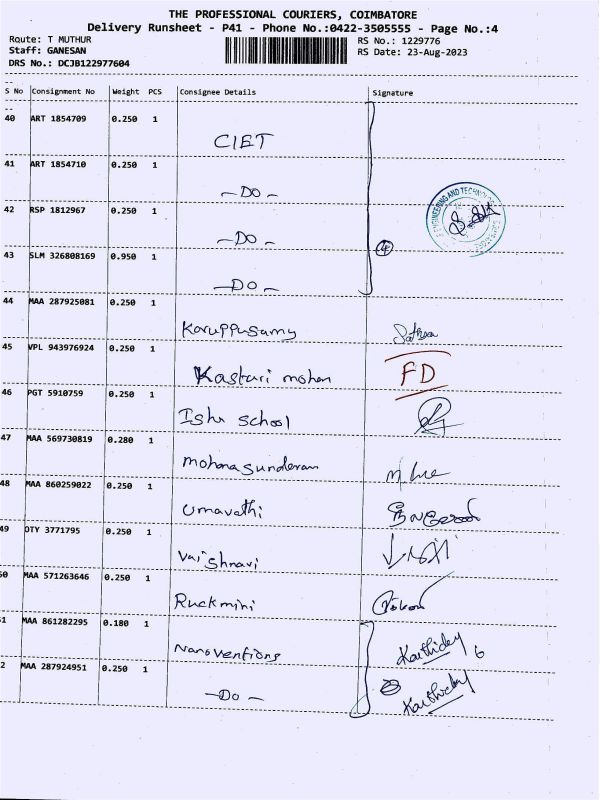 THE PROFESSIONAL COURIERS, COIMBATORE
Delivery Runsheet - P41 - Phone No.:0422-3505555 - Page No.:4
Route: T MUTHUR RS No.: 1229776
Staff: GANESAN RS Date: 23-Aug-2023
DRS No.: DCJB122977604
S No Consignment No Weight PCS Consignee Details Signature
40 ART 1854709 0.250 1
CIET
41 ART 1854710 0.250 1
-DO-
42 RSP 1812967 0.250 1
-DO-
ENGINEERING AND TECHNOLOGY
4
43 SLM 326808169 0.950 1
-DO-
44 MAA 287925081 0.250 1
Karuppusamy
45 VPL 943976924 0.250 1
Kasturi mohan FD
46 PGT 5910759 0.250 1
Ishu school
47 MAA 569730819 0.280 1
Mohanasunderam
48 MAA 860259022 0.250 1
Umavathi
49 DTY 3771795 0.250 1
Vaishnavi
50 MAA 571263646 0.250 1
Ruckmini
51 MAA 861282295 0.180 1
Nanoventions Karthickey 6
2 MAA 287924951 0.250 1
-Do- Karthickey